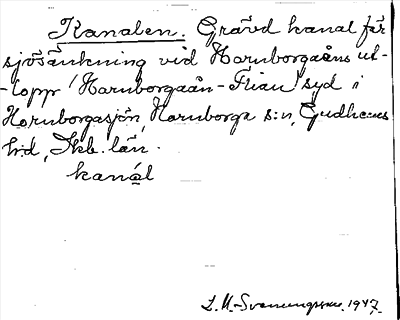 Kanalen. Grävd kanal för
sjösänkning vid Hornborgaåns ut-
-lopp (Hornborgaån-Flian) syd i
Hornborgasjön, Hornborga s:n, Gudhems
h:d, Skb. län.
kanál
S. M. Svenungsson. 1947.